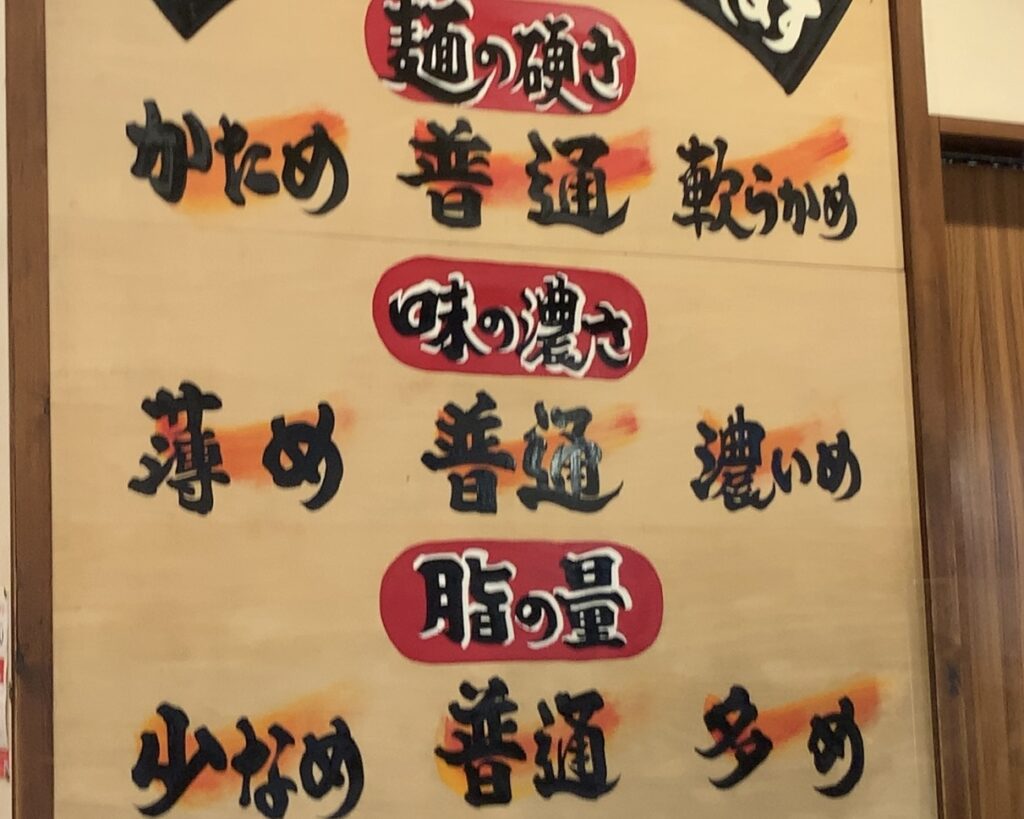 ます
麺の硬さ
かため 普通 軟らかめ
味の濃さ
薄め 普通 濃いめ
脂の量
少なめ 普通 多め